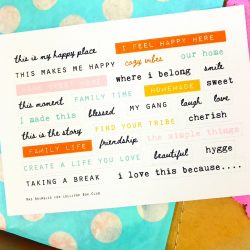 this is my happy place
I FEEL HAPPY HERE
THIS MAKES ME HAPPY
cozy vibes
our home
HOME SWEET HOME
where i belong
smile
this moment
FAMILY TIME
HOMEMADE
sweet
I made this
blessed
MY GANG
laugh
love
this is the story
FIND YOUR TRIBE
cherish
FAMILY LIFE
friendship
the simple things
CREATE A LIFE YOU LOVE
beautiful
hygge
TAKING A BREAK
i love this because....